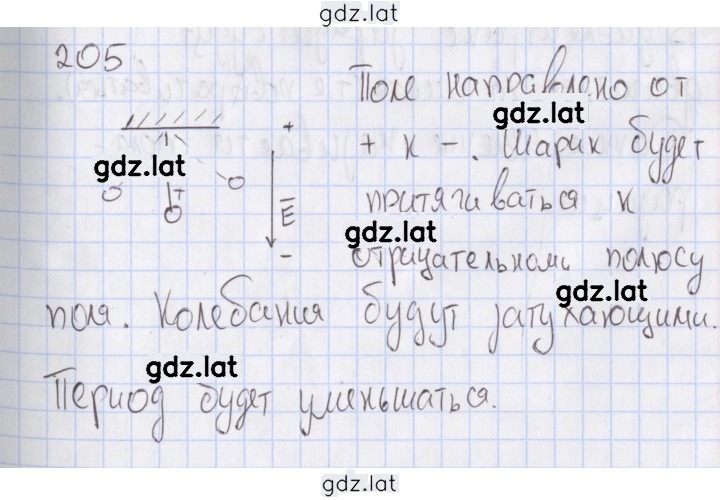 gdz.lat
205
Поле направлено от
gdz.lat
+
+ к -. Шарик будет
gdz.lat
притягиваться к
T
E
gdz.lat
-
отрицательному полюсу
gdz.lat
поля. Колебания будут затухающими.
gdz.lat
Период будет уменьшаться.
gdz.lat